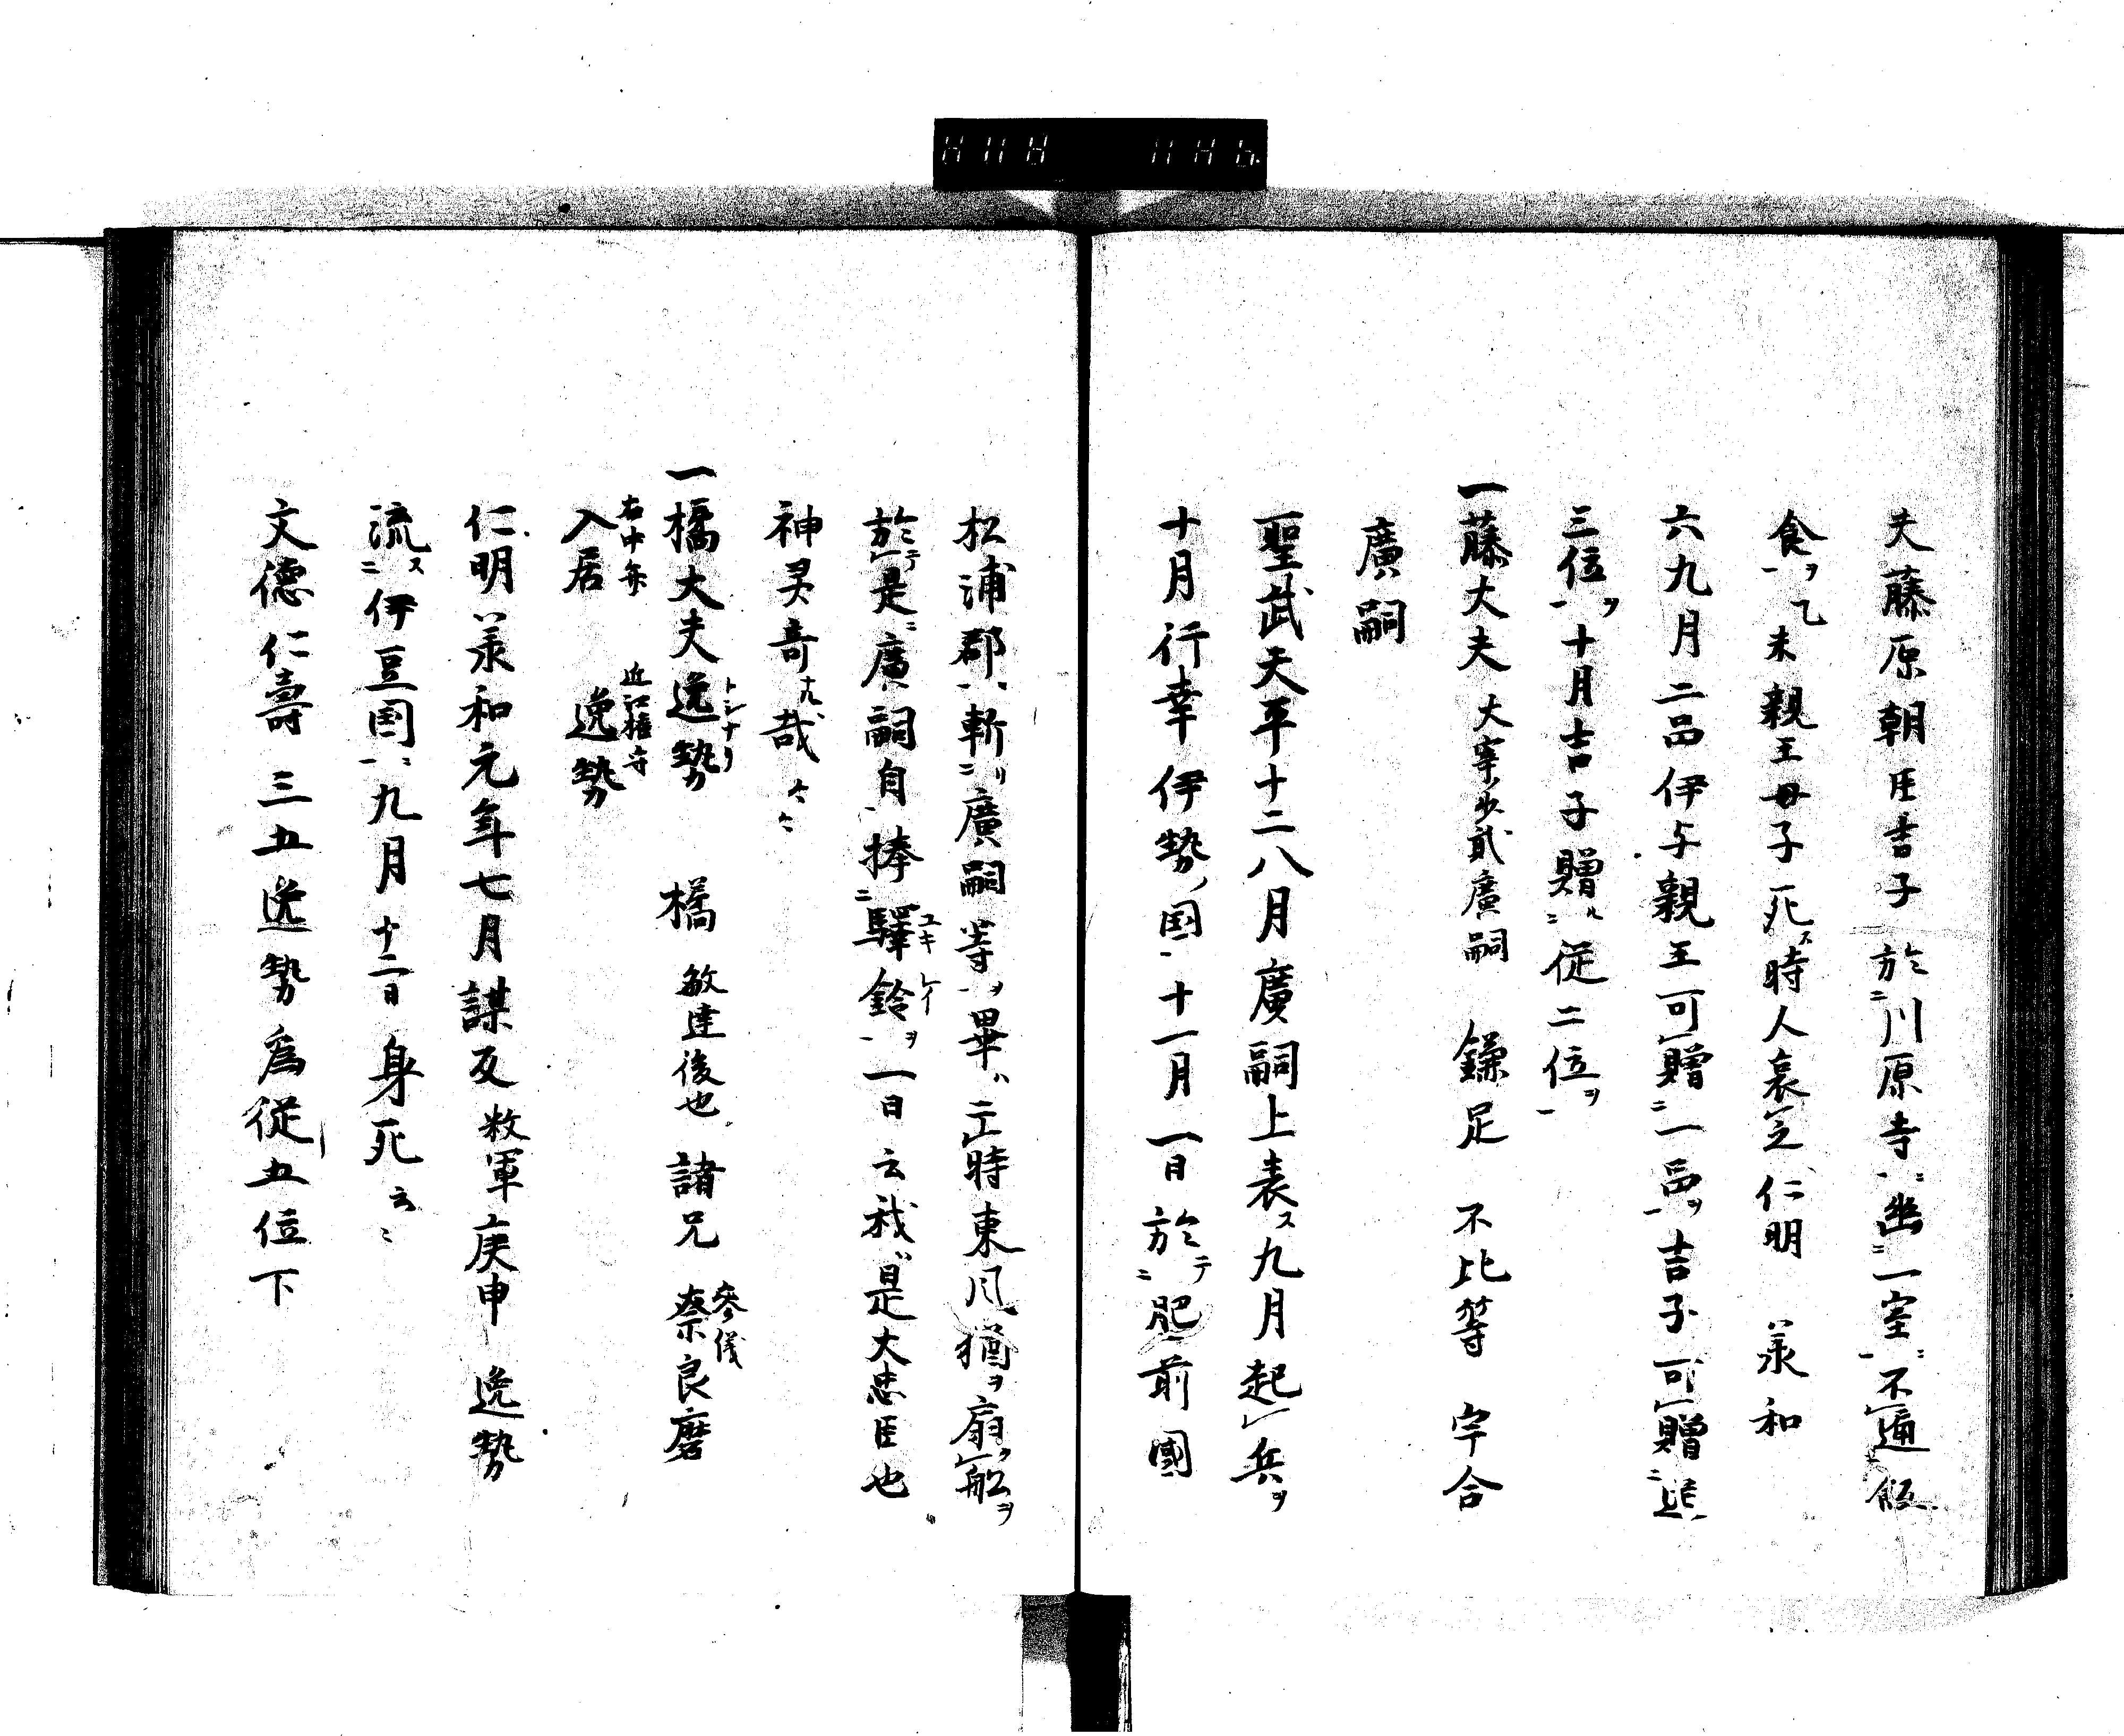 夫藤原朝臣吉子於川原寺幽一室不通飲
食乙未親王母子死時人哀之仁明 兼和
六九月二品伊与親王可贈一品吉子可贈進
三位十月吉子贈従二位
一藤大夫 大宰少貳廣嗣 鎌足 不比等 宇合
廣嗣
聖武天平十二八月廣嗣上表ス九月起兵ヲ
十月行幸伊勢ノ国十一月一日於テ肥前國
松浦郡斬リ廣嗣等ヲ畢ハ亡時東風猶ヲ扇船ヲ
於テ是ニ廣嗣自捧驛鈴ヲ一日云我ハ是大忠臣也
ユキ レイ
神灵奇ナル哉々々
一橘大夫逸勢 橘 敏達後也 諸兄 奈良麿
トシナリ
参儀
入居 逸勢
右中弁
近江權守
仁明兼和元年七月謀反 敕軍庚申 逸勢
流ス伊豆国ニ九月十二日身死云々
文徳仁壽三五逸勢為従五位下